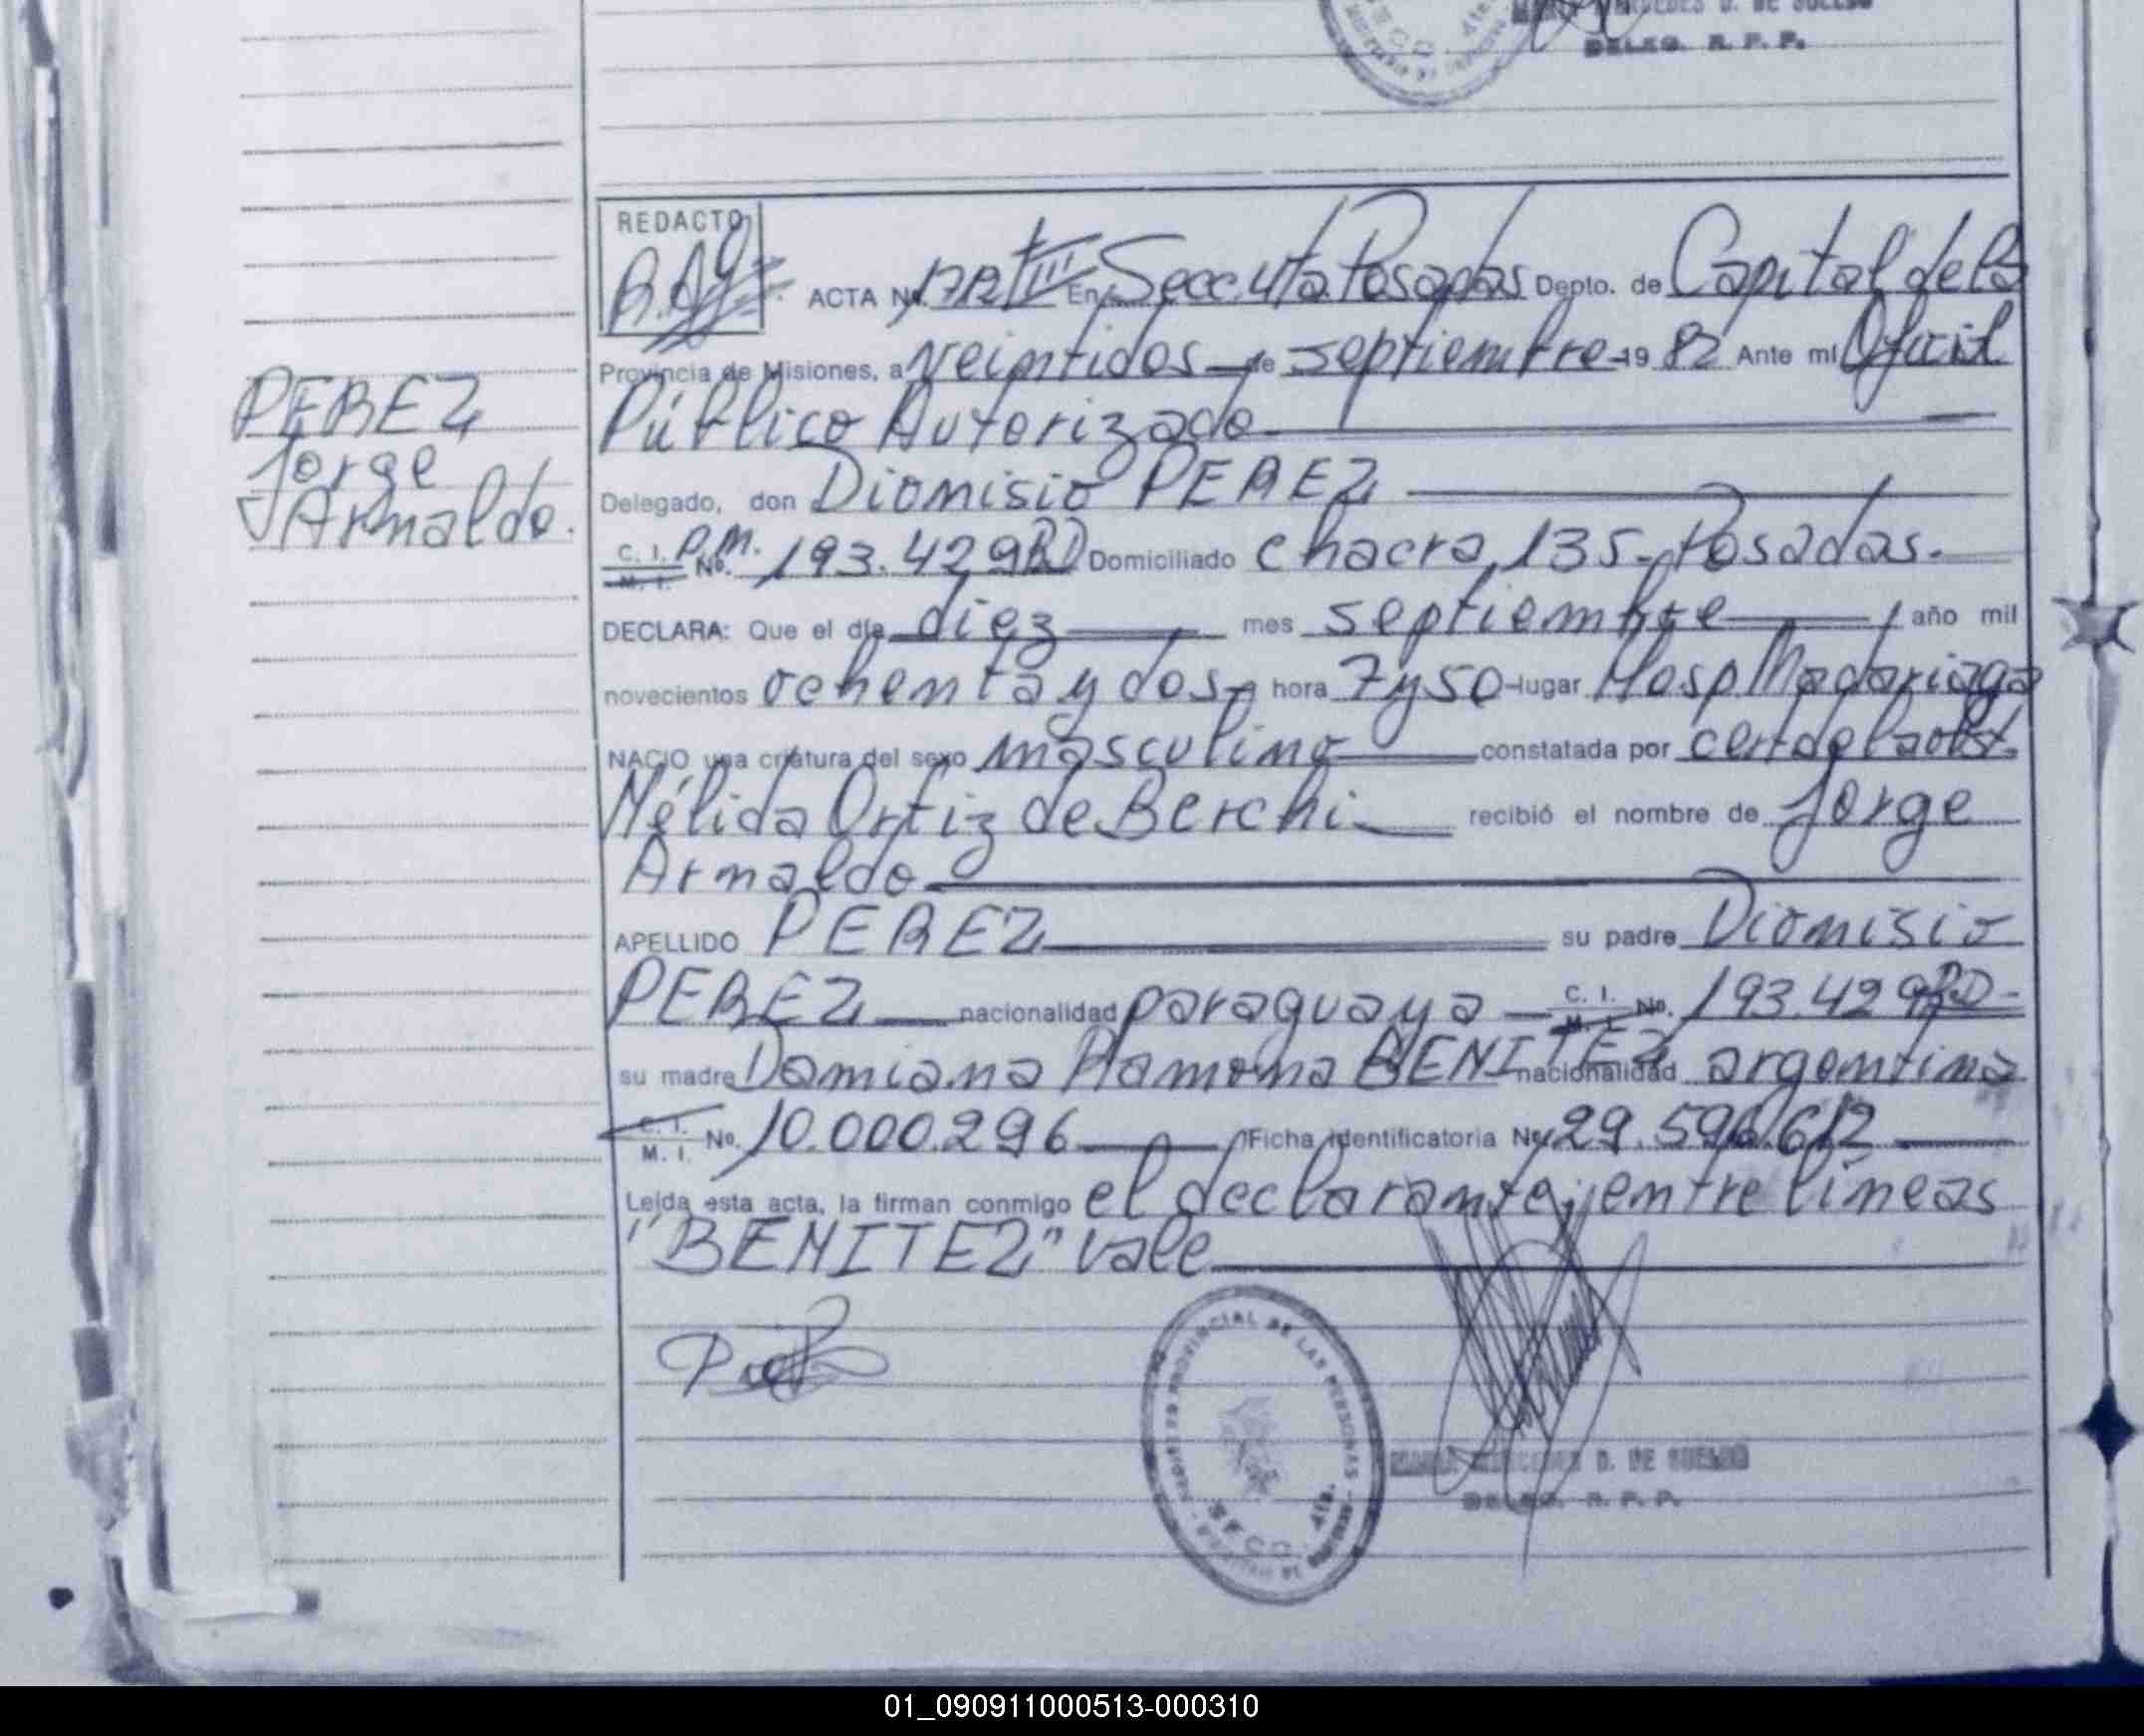 DELEG. R. P. P.
REDACTO
ACTA Nº 1712 T III En Secc. 4ta. Posadas Depto. de Capital de la
Provincia de Misiones, a veintidos de septiembre 19 82 Ante mí Oficial
Público Autorizado
PEREZ
Jorge
Arnaldo.
Delegado, don Dionisio PEREZ
C. I. P.M. Nº. 193.429 Domiciliado chacra 135-Posadas.
M. I.
DECLARA: Que el día diez mes septiembre año mil
novecientos ochenta y dos hora 7 y 50 lugar Hosp Madariaga
NACIO una criatura del sexo masculino constatada por cert de la obst.
Nélida Ortiz de Berchi recibió el nombre de Jorge
Arnaldo
APELLIDO PEREZ su padre Dionisio
PEREZ nacionalidad paraguaya C. I. No. 193.429
M. I.
su madre Damiana Ramona BENITEZ nacionalidad argentina
C. I. No. 10.000.296 Ficha identificatoria Nº 29.596.612
M. I.
Leída esta acta, la firman conmigo el declarante; entre líneas
"BENITEZ" vale
PROVINCIAL DE LAS PERSONAS
SECC. 4ta.
DELEG. R. P. P.
01_090911000513-000310